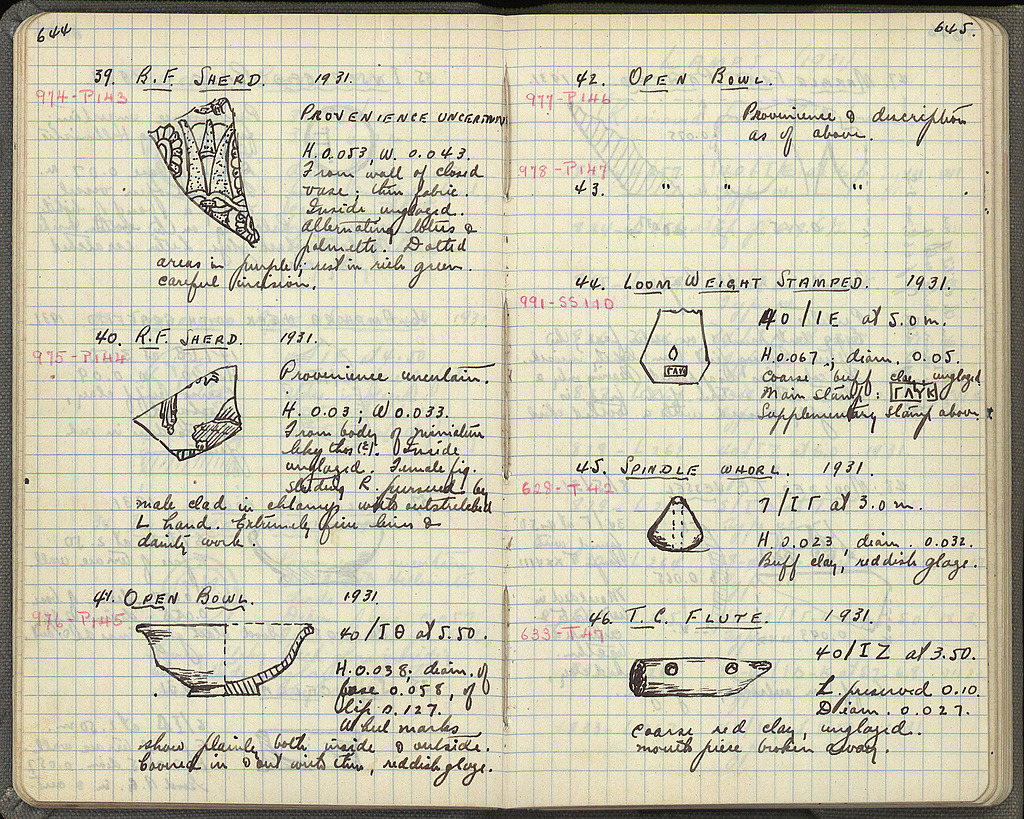 644
39. B.F. SHERD. 1931.
974-P143
PROVENIENCE UNCERTAIN
H. 0.053, W. 0.043.
From wall of closed
vase; thin fabric.
Inside unglazed.
Alternating lotus &
palmette. Dotted
areas in purple; rest in rich green.
careful incision.
40. R.F. SHERD. 1931.
975-P144
Provenience uncertain.
H. 0.03; W 0.033.
From body of miniature
lekythos(?). Inside
unglazed. Female fig.
striding R. pursued by
male clad in chlamys with outstretched
L hand. Extremely fine lines &
dainty work.
41. OPEN BOWL. 1931.
976-P145
40/ΙΘ at 5.50.
H. 0.038; diam. of
base 0.058, of
lip 0.127.
Wheel marks
show plainly both inside & outside.
Covered in & out with thin, reddish glaze.
645.
42. OPEN BOWL.
977-P146
Provenience & discription
as of above.
978-P147
43. " " "
44. LOOM WEIGHT STAMPED. 1931.
991-SS110
40/ΙΕ at 5.0 m.
H. 0.067; diam. 0.05.
Coarse buff clay, unglazed
Main stamp: ΓΛΥΚ
Supplementary stamp above
ΓΛΥΚ
45. SPINDLE WHORL. 1931.
628-T42
7/ΙΓ at 3.0 m.
H. 0.023, diam. 0.032.
Buff clay, reddish glaze.
46. T.C. FLUTE. 1931.
633-T47
40/ΙΖ at 3.50.
L. preserved 0.10.
Diam. 0.027.
Coarse red clay, unglazed.
mouth piece broken away.